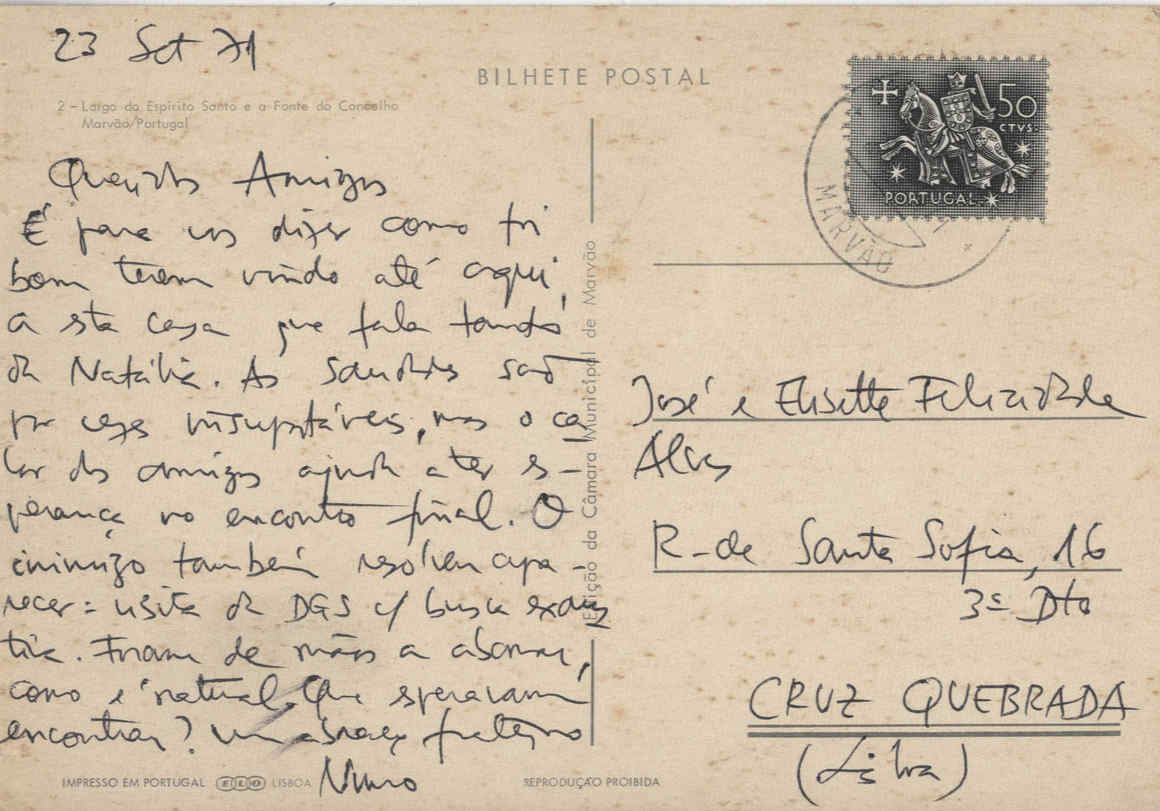 23 Set 71
BILHETE POSTAL
2 – Largo do Espírito Santo e a Fonte do Concelho
Marvão/Portugal
50
CTVS.
PORTUGAL
MARVÃO
Queridos Amigos
É para vos dizer como foi
bom terem vindo até aqui,
a esta casa que fala tanto
da Natália. As saudades são
por vezes insuportáveis, mas o ca-
lor dos amigos ajuda a ter es-
perança no encontro final. O
inimigo também resolveu apa-
recer: visita da DGS c/ busca exaus
tiva. Foram de mãos a abanar,
como é natural. Que esperavam
encontrar? Um abraço fraterno
Nuno
Edição da Câmara Municipal de Marvão
José e Elisette Felicidade
Alves
R. de Santa Sofia, 16
3º Dto
CRUZ QUEBRADA
(Lisboa)
IMPRESSO EM PORTUGAL ELO LISBOA
REPRODUÇÃO PROIBIDA